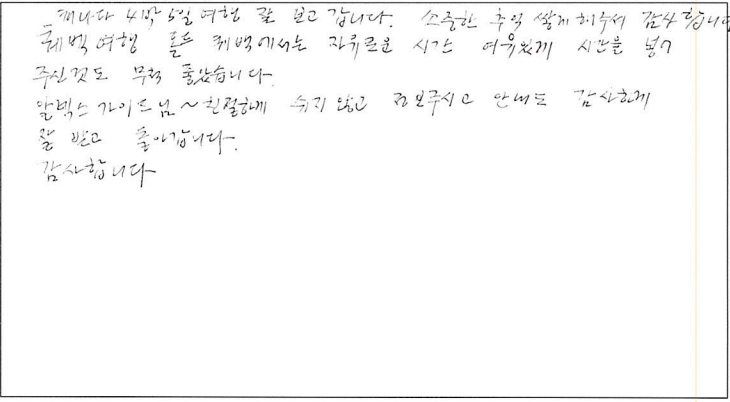 캐나다 4박 5일 여행 잘 보고 갑니다. 소중한 추억 쌓게 해주셔 감사합니다
퀘벡여행 올드 퀘벡에서는 자유로운 시간 여유있게 시간을
주신것도 무척 좋았습니다.
알렉스 가이드님~친절하게 쉬지 않고 정보주시고 안내도 감사하게
잘 받고 돌아갑니다.
감사합니다